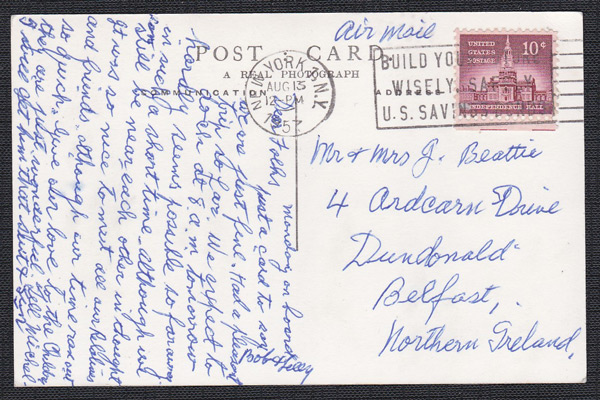 Air Mail
POST CARD
A REAL PHOTOGRAPH
COMMUNICATION
ADDRESS
NEW YORK, N.Y.
AUG 13
12 - PM
1957
BUILD YOUR
WISELY
U.S. SAVINGS
UNITED STATES POSTAGE
10¢
INDEPENDENCE HALL
Mr & Mrs J. Beattie
4 Ardcarn Drive
Dundonald
Belfast,
Northern Ireland,
Monday on board
Dear Folks
Just a card to say
we are just fine. Had a pleasant
trip so far. We expect to
dock at 8 a.m. tomorrow
hardly seems possible so far away
in such a short time - although we'll
still be near each other in thought
It was so nice to meet all our relatives
and friends, although our time ran out
so quick. Give our love to the Childer
they are just wonderful & tell Michel
I will get him that shirt &
Bob &